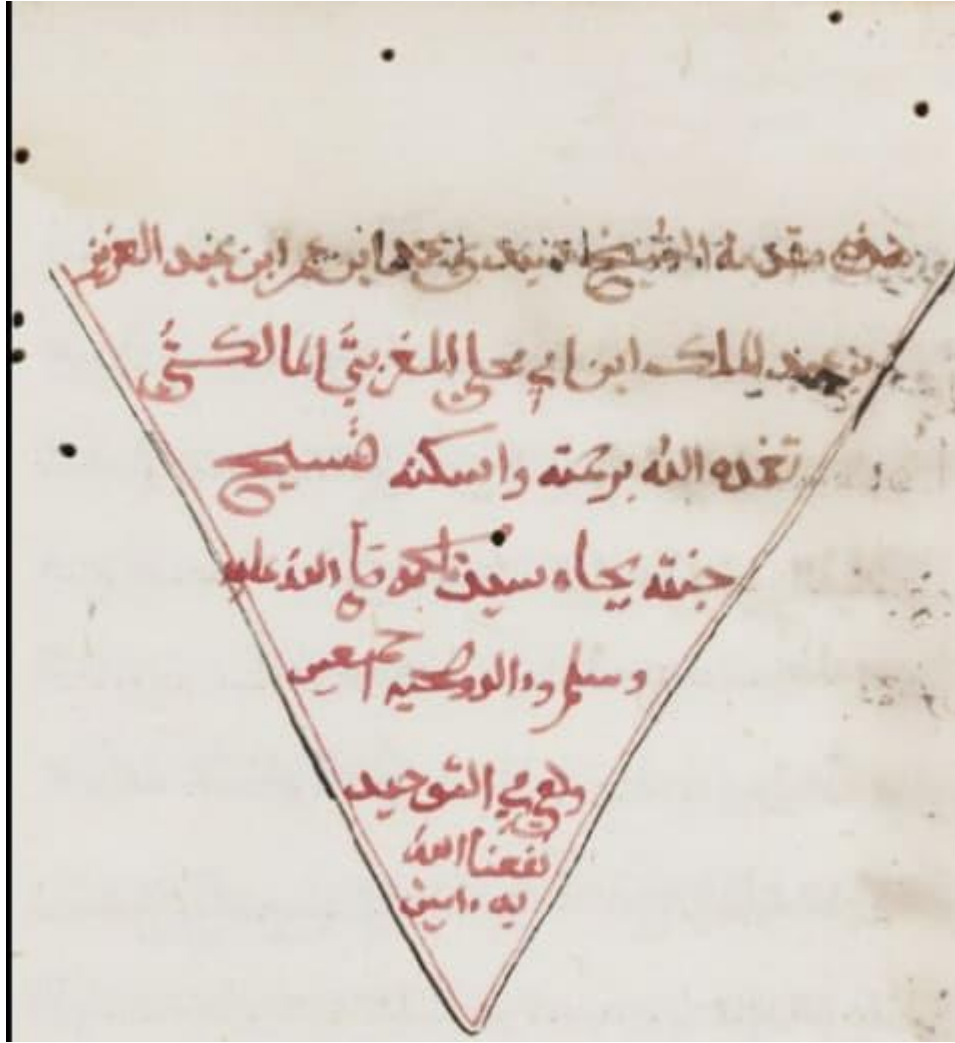 هذه مقدمة الشيخ محمد ابن عمر ابن عبد العزيز
بن عبد الملك ابن ابي محلي المغربيّ المالكيّ
تغمده الله برحمته واسكنه فسيح
جنته بجاه سيدنا محمد صلى الله عليه
وسلم وءاله وصحبه اجمعين
وهي في التوحيد
نفعنا الله
به ءامين